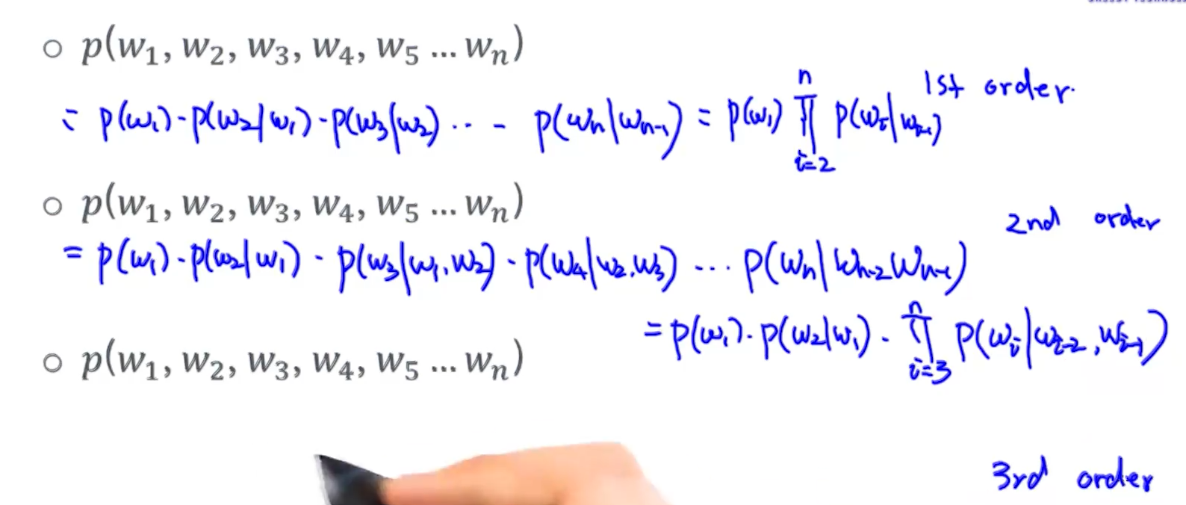 ○ p(w₁, w₂, w₃, w₄, w₅ ... wₙ)
1st order.
= p(w₁) · p(w₂|w₁) · p(w₃|w₂) ··· - p(wₙ|wₙ₋₁) = p(w₁) ∏ᵢ₌₂ⁿ p(wᵢ|wᵢ₋₁)
○ p(w₁, w₂, w₃, w₄, w₅ ... wₙ)
2nd order
= p(w₁) · p(w₂|w₁) · p(w₃|w₁,w₂) · p(w₄|w₂,w₃) ··· p(wₙ|wₙ₋₂wₙ₋₁)
= p(w₁) · p(w₂|w₁) · ∏ᵢ₌₃ⁿ p(wᵢ|wᵢ₋₂,wᵢ₋₁)
○ p(w₁, w₂, w₃, w₄, w₅ ... wₙ)
3rd order